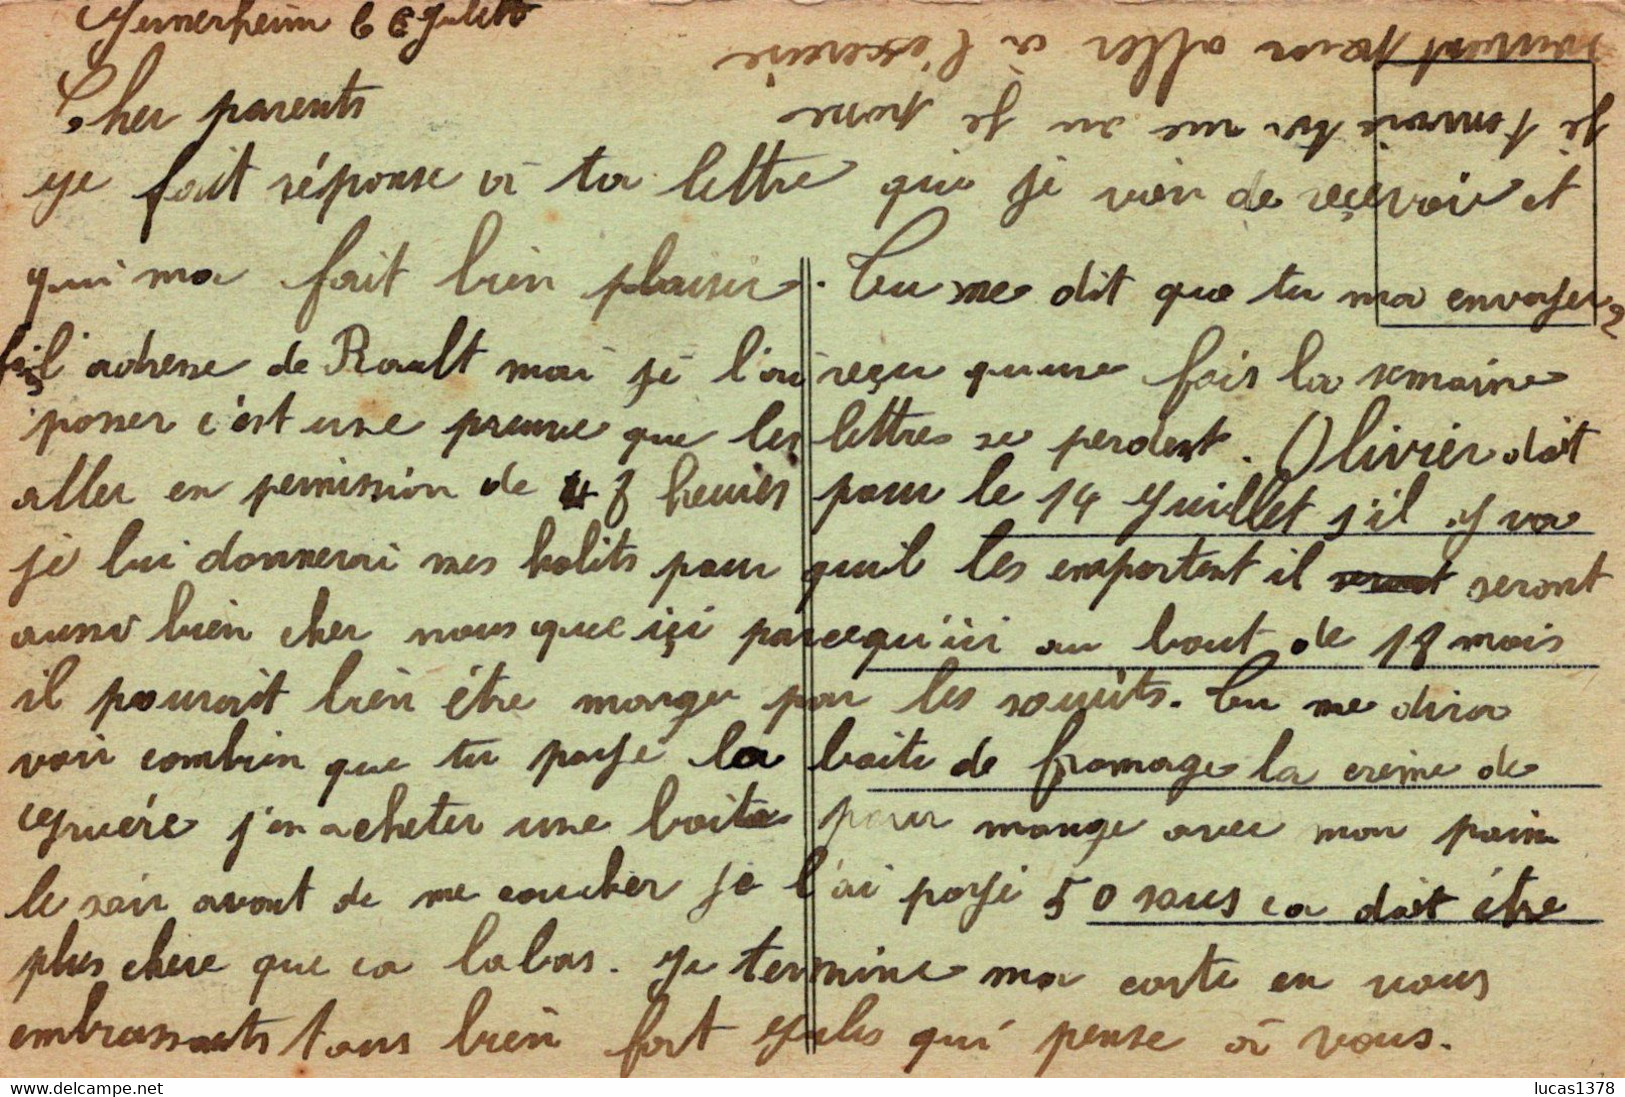 Germerheim le 6 Juillet
Cher parents
Je fait réponse à ta lettre que je vien de reçevoir et
qui ma fait bien plaisir. Tu me dit que tu ma envoyer 2
fois l'adresse de Rault mai je l'ai reçu qu'une fois la semaine
passer c'est une preuve que les lettres se perdent. Olivier doit
aller en permission de 48 heures pour le 14 Juillet s'il y va
je lui donnerai mes habits pour qu'il les emportent il seront
aussi bien cher nous que içi parcequ'ici au bout de 18 mois
il pourait bien être manger par les souris. Tu me dira
voir combien que tu paye la boite de fromage la crème de
Gruére j'en acheter une boite pour mange avec mon pain
le soir avant de me coucher je l'ai payé 50 sous ca doit être
plus chere que ca labas. Je termine ma carte en vous
embrassants tous bien fort Jules qui pense à vous.
je t'envoie la vue ou je passe
souvent pour aller à l'exercice
lucas1378